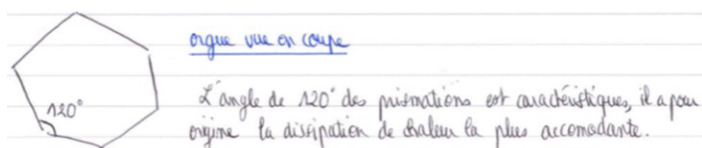 orgue vue en coupe
L'angle de 120° des prismations est caractéristiques, il a pour
origine la dissipation de chaleur la plus accomodante.
120°